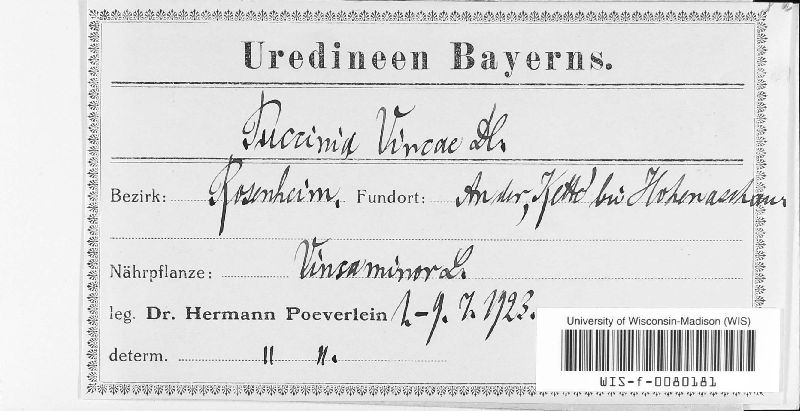 Uredineen Bayerns.
Puccinia Vincae
Bezirk: Rosenheim. Fundort: An der „Kette“ bei Hohenaschau.
Nährpflanze: Vinca minor L.
leg. Dr. Hermann Poeverlein 1.–9. 7. 1923.
determ. " ".
University of Wisconsin-Madison (WIS)
WIS-f-0080181